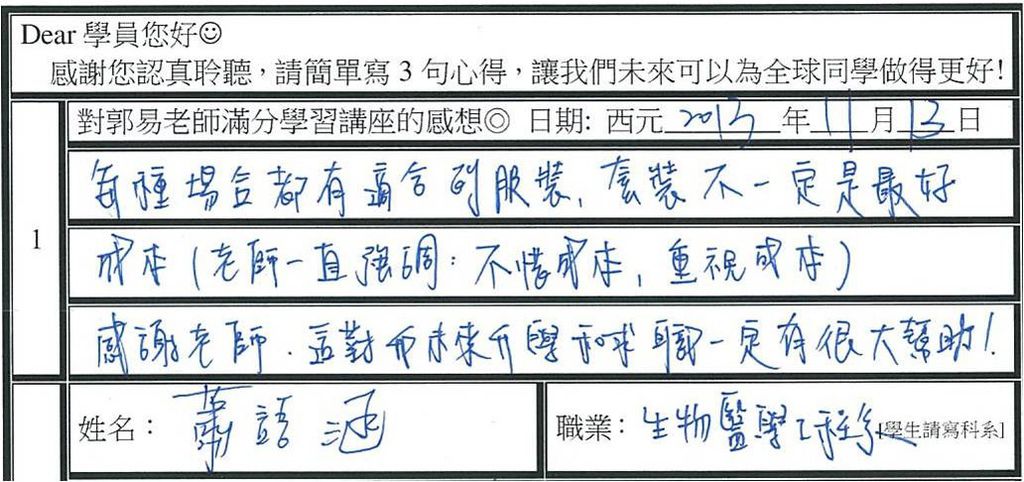 Dear 學員您好☺
感謝您認真聆聽，請簡單寫 3 句心得，讓我們未來可以為全球同學做得更好！
1
對郭易老師滿分學習講座的感想◎ 日期: 西元 2013 年 11 月 13 日
每種場合都有適合的服裝，套裝不一定是最好
成本（老師一直強調：不惜成本，重視成本）
感謝老師．這對而未來升學和求職一定有很大幫助！
姓名：蕭語涵
職業：生物醫學工程系 [學生請寫科系]